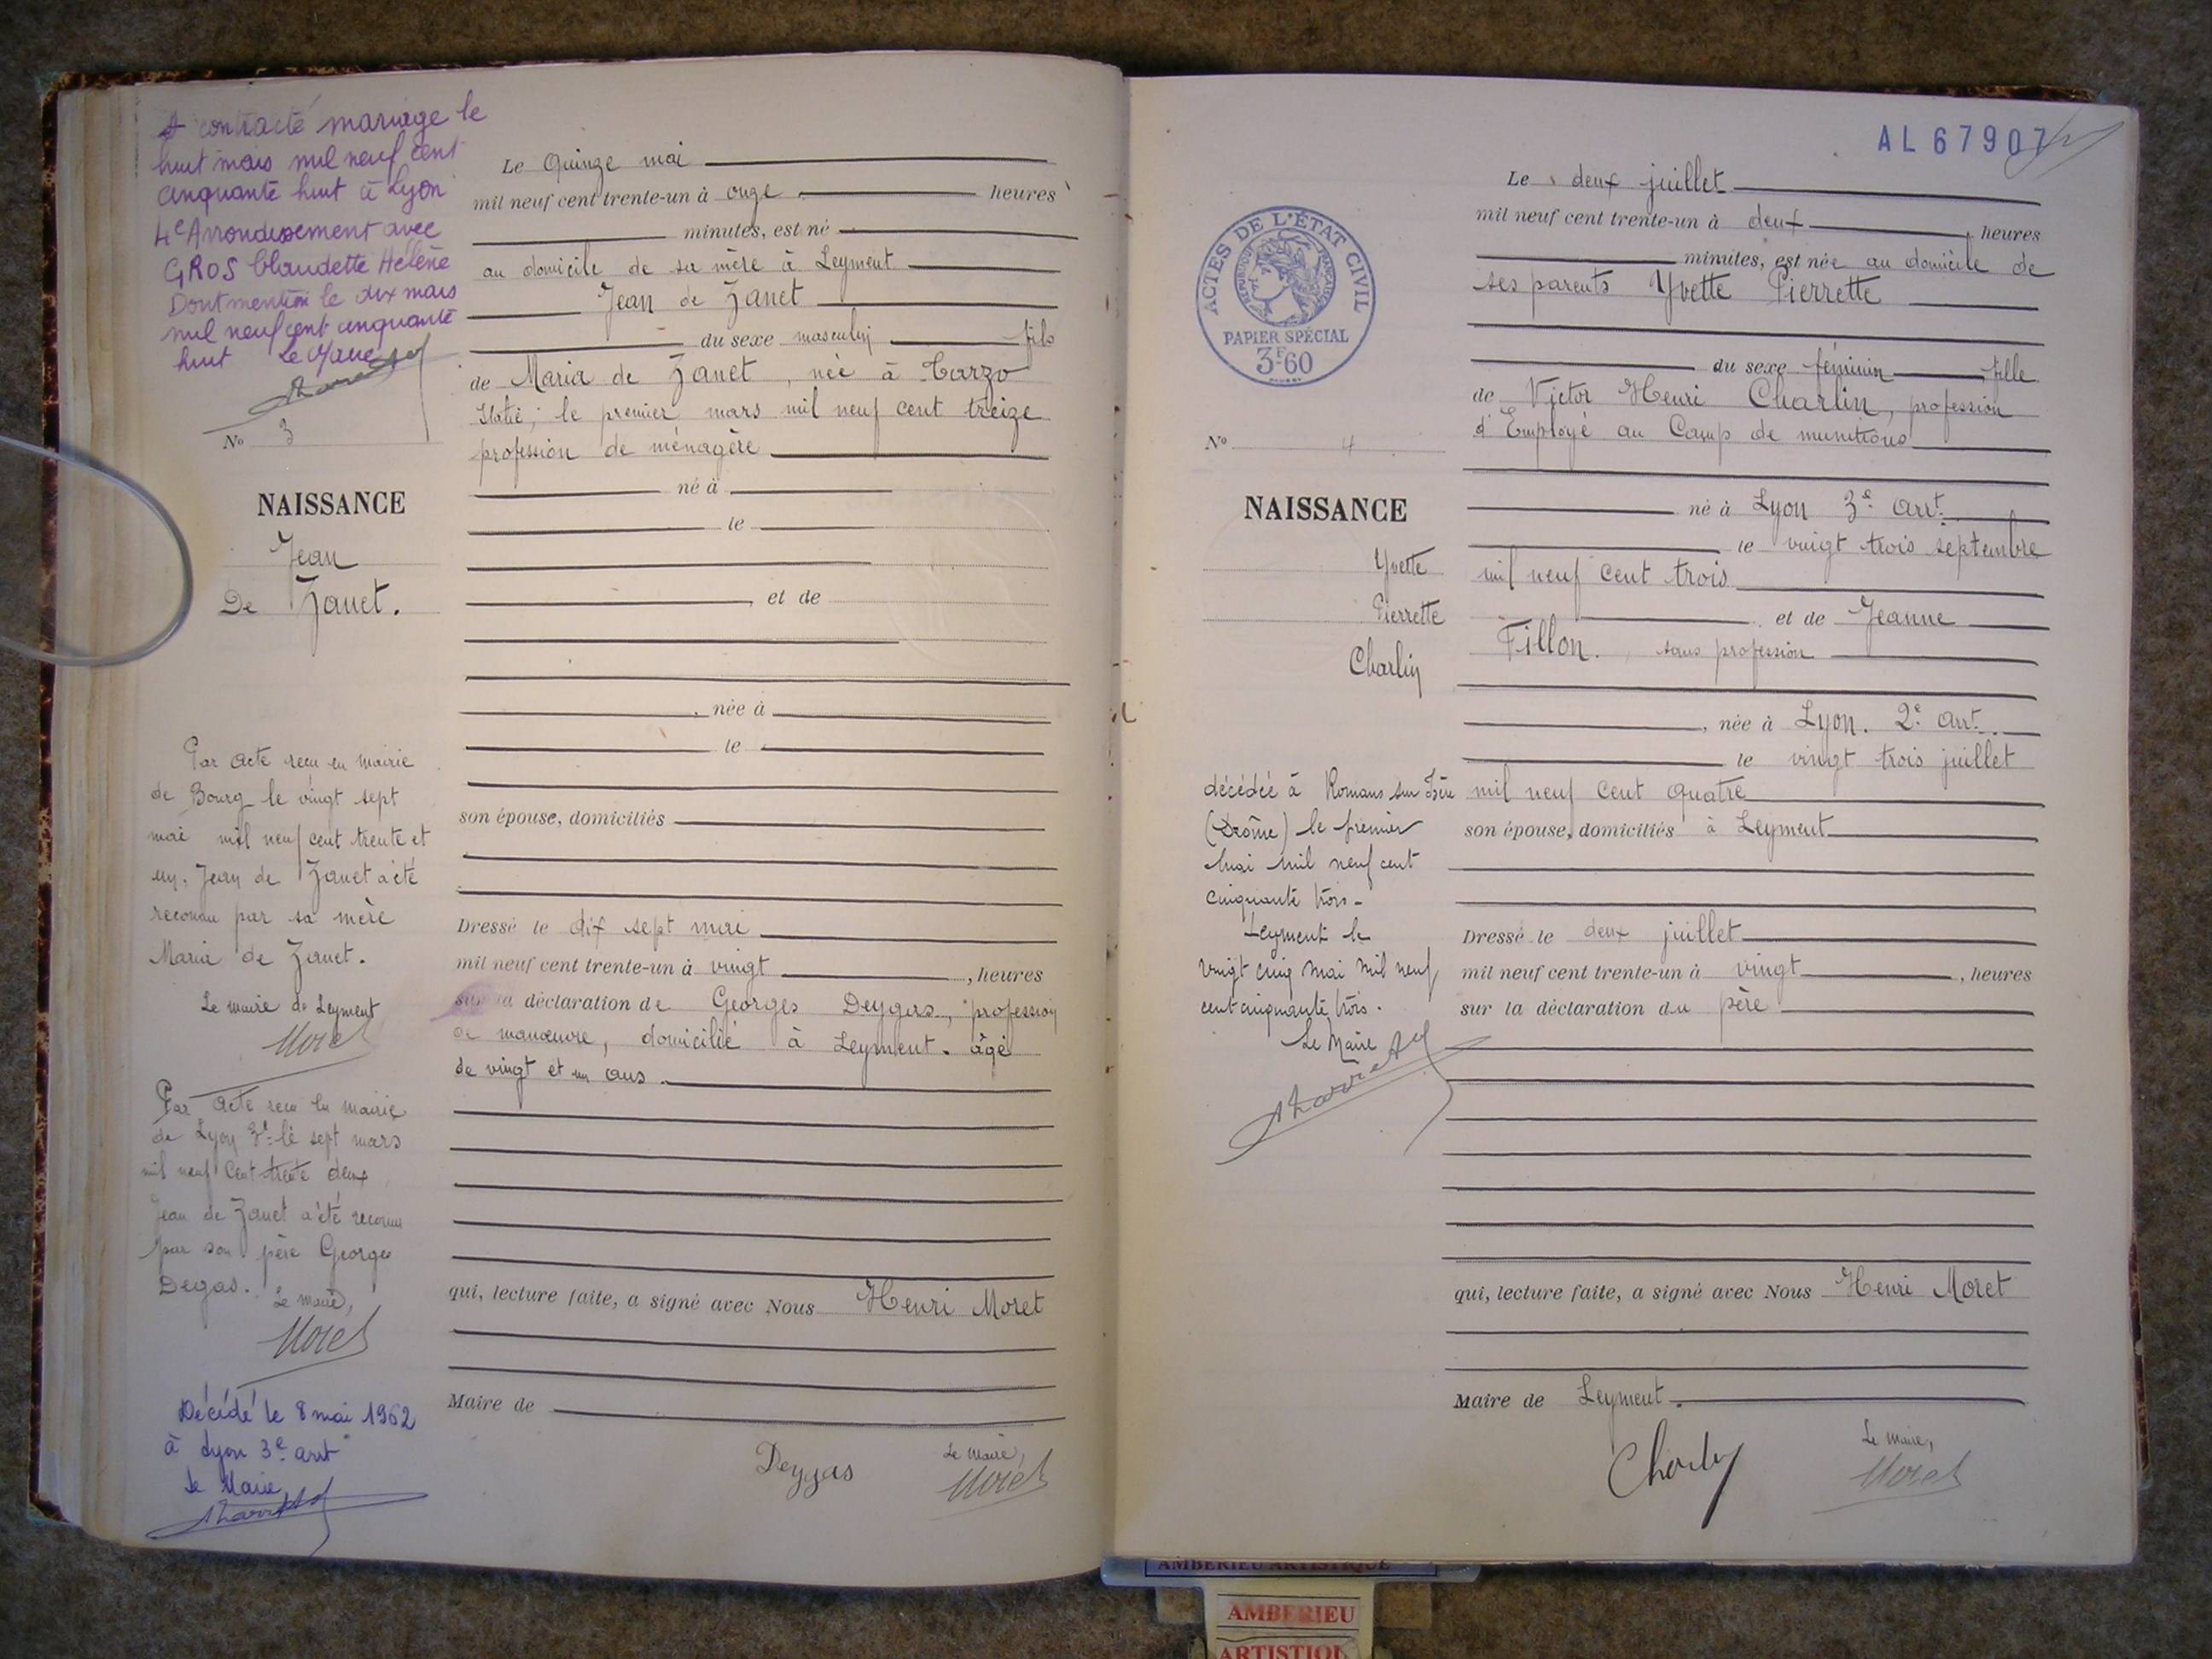 A contracté mariage le
huit mars mil neuf cent
cinquante huit à Lyon
4e Arrondissement avec
GROS Claudette Hélène
Dont mention le dix mars
mil neuf cent cinquante
huit Le Maire
No 3
NAISSANCE
Jean
De Zanet.
Par acte reçu en mairie
de Bourg le vingt sept
mai mil neuf cent trente et
un, Jean de Zanet a été
reconnu par sa mère
Maria de Zanet.
Le maire de Leyment
Moret
Par acte reçu en mairie
de Lyon 3e le sept mars
mil neuf cent trente deux
Jean de Zanet a été reconnu
par son père Georges
Degas. Le maire,
Moret
Décédé le 8 mai 1962
à Lyon 3e arrt
Le Maire
Le Quinze mai
mil neuf cent trente-un à onze heures
minutes, est né
au domicile de sa mère à Leyment
Jean de Zanet
du sexe masculin fils
de Maria de Zanet, née à Tarzo
Italie, le premier mars mil neuf cent treize
profession de ménagère
né à
le
, et de
, née à
le
son épouse, domiciliés
Dressé le dix sept mai
mil neuf cent trente-un à vingt , heures
sur la déclaration de Georges Deygas, profession
de manœuvre, domicilié à Leyment. âgé
de vingt et un ans.
qui, lecture faite, a signé avec Nous Henri Moret
Maire de
Deygas
Le maire,
Moret
AL 67907
ACTES DE L'ÉTAT CIVIL
RÉPUBLIQUE FRANÇAISE
PAPIER SPÉCIAL
3F60
No 4
NAISSANCE
Yvette
Pierrette
Charlin
décédée à Romans sur Isère
(Drôme) le premier
mai mil neuf cent
cinquante trois -
Leyment le
vingt cinq mai mil neuf
cent cinquante trois.
Le Maire
Le deux juillet
mil neuf cent trente-un à deux , heures
minutes, est née au domicile de
ses parents Yvette Pierrette
du sexe féminin fille
de Victor Henri Charlin, profession
d'Employé au Camp de munitions
né à Lyon 3e arrt.
le vingt trois septembre
mil neuf cent trois
et de Jeanne
Fillon, sans profession
, née à Lyon. 2e arrt.
le vingt trois juillet
mil neuf cent quatre
son épouse, domiciliés à Leyment
Dressé le deux juillet
mil neuf cent trente-un à vingt , heures
sur la déclaration du père
qui, lecture faite, a signé avec Nous Henri Moret
Maire de Leyment.
Charlin
Le maire,
Moret
AMBERIEU ARTISTIQUE
AMBERIEU